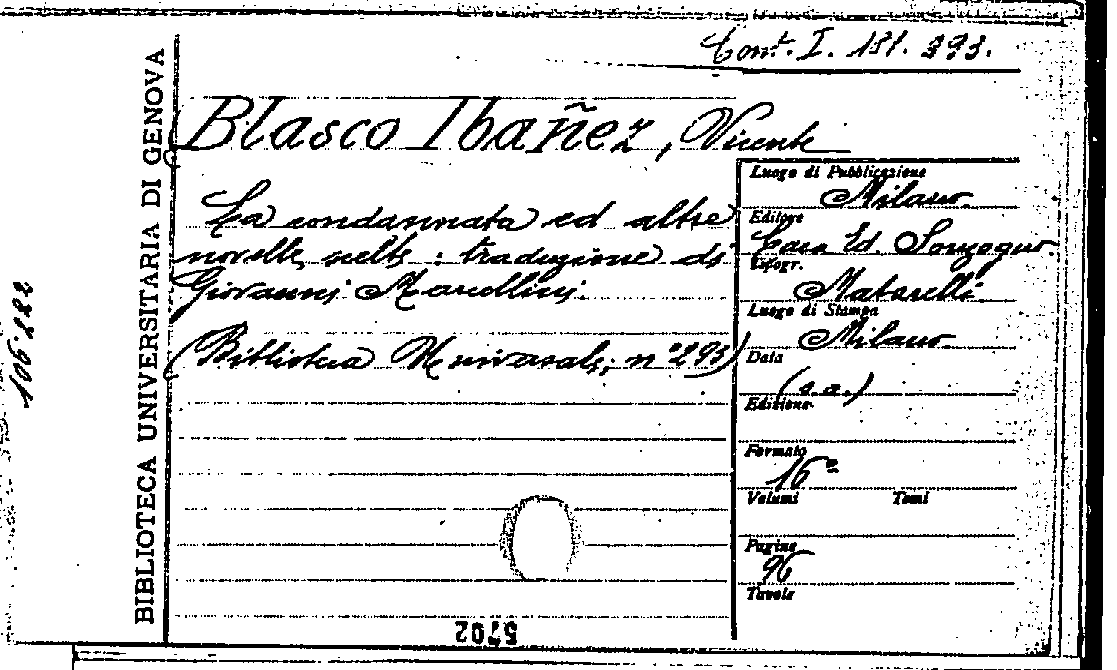 Cont. I. 131. 393.
BIBLIOTECA UNIVERSITARIA DI GENOVA
106.122
Blasco Ibañez, Vicente
La condannata ed altre
novelle scelte : traduzione di
Giovanni Marcellini.
(Biblioteca Universale; n° 293)
Luogo di Pubblicazione
Milano
Editore
Casa Ed. Sonzogno
Tipogr.
Matarelli
Luogo di Stampa
Milano
Data
(s.a.)
Edizione
Formato
16°
Volumi Tomi
Pagine
96
Tavole
5702